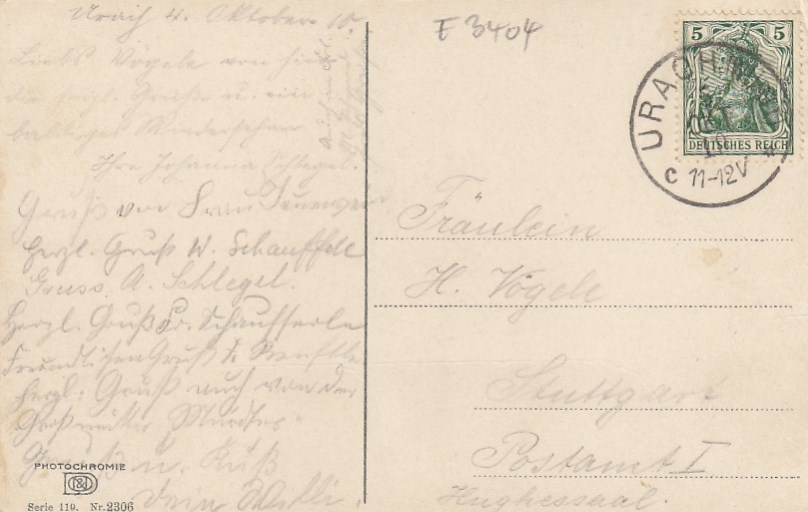 Urach 4. Oktober 10.
Liebs Vögele von hier
die herzl. Grüße u. ein
baldiges Wiedersehen
Ihre Johanna
Gruß von Frau
Herzl. Gruß W. Schauffele
Gruss A. Schlegel.
Herzl. Gruß Fr. Schaufferle
Freundlichen Gruß
herzl. Gruß auch von der
Großmutter
Gruß u. Kuß
Dein Willi.
PHOTOCHROMIE
Serie 119. Nr. 2306
E 3404
5 5
DEUTSCHES REICH
URACH
OKT
10
C 11-12V *
Fräulein
H. Vögele
Stuttgart
Postamt I